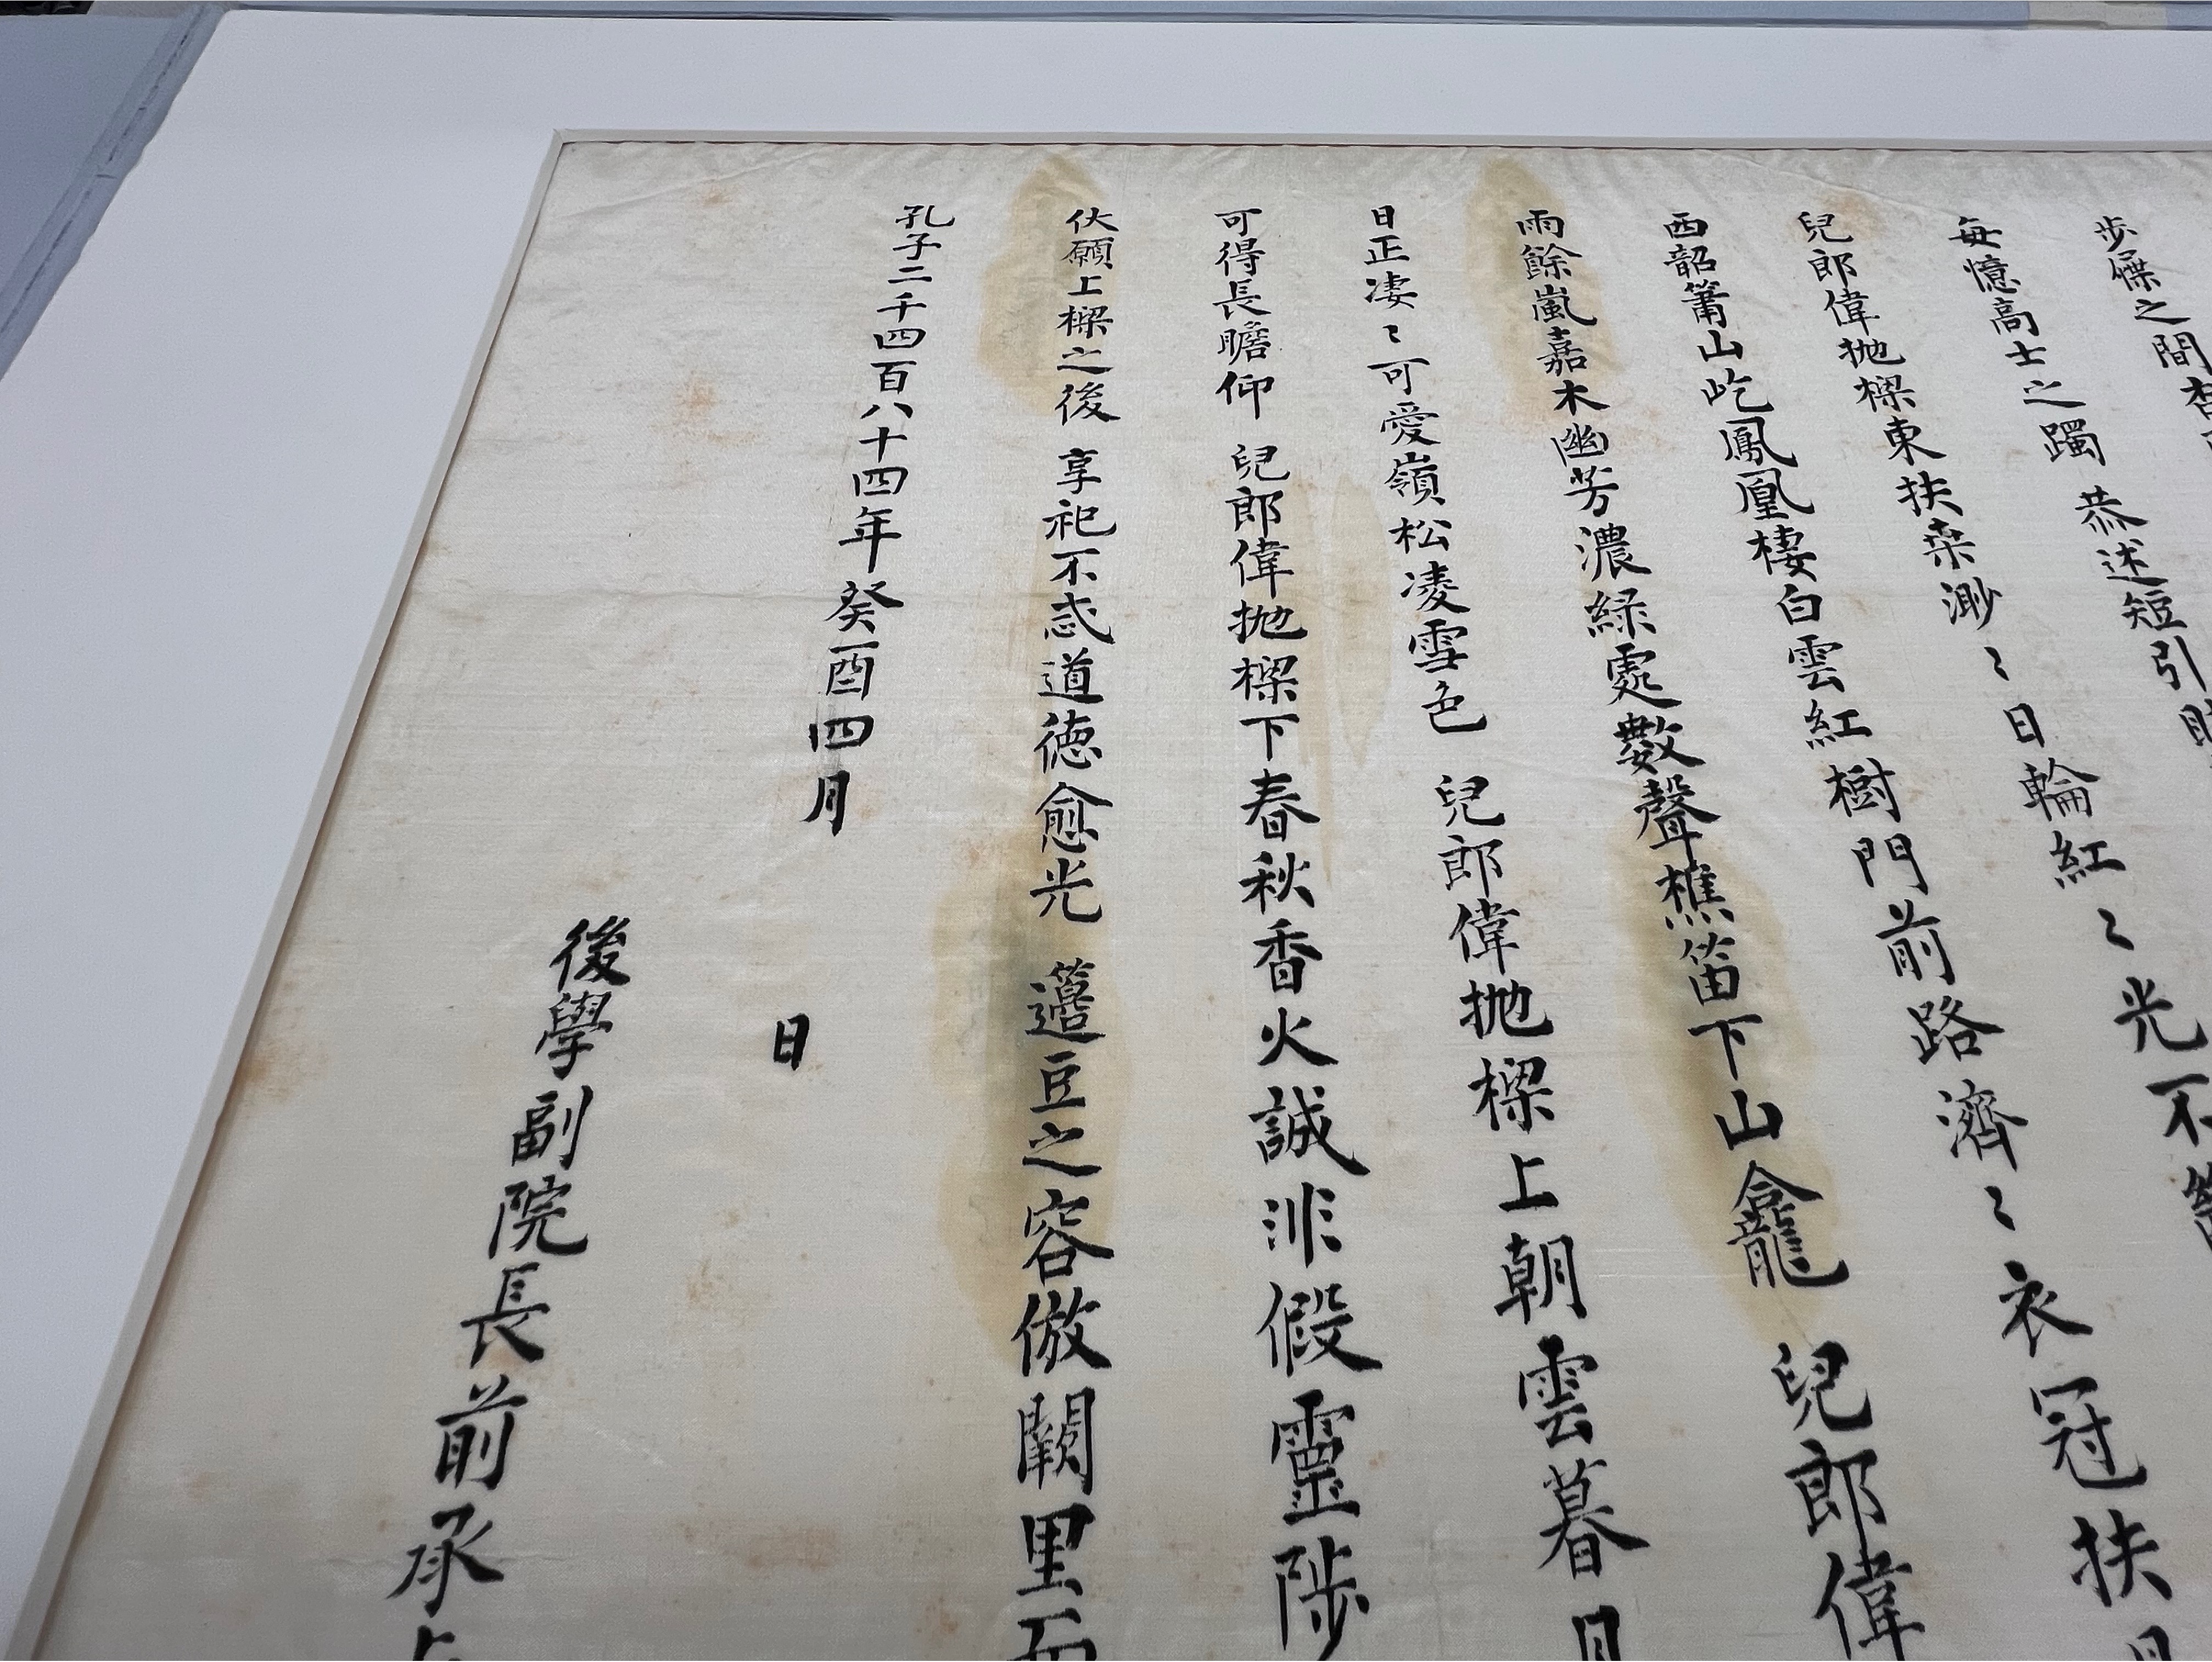 步屧之間
每憶高士之躅 恭述短引
兒郎偉抛樑東扶桒渺〻日輪紅〻光不
西韶簫山屹鳳凰棲白雲紅樹門前路濟〻衣冠扶
雨餘嵐嘉木幽芳濃緑處數聲樵笛下山龕 兒郎偉
日正凄〻可愛嶺松凌雪色 兒郎偉抛樑上朝雲暮
可得長瞻仰 兒郎偉抛樑下春秋香火誠非假靈陟
伏願上樑之後 享祀不忒道德愈光 籩豆之容倣闕里
孔子二千四百八十四年癸酉四月 日
後學副院長前承